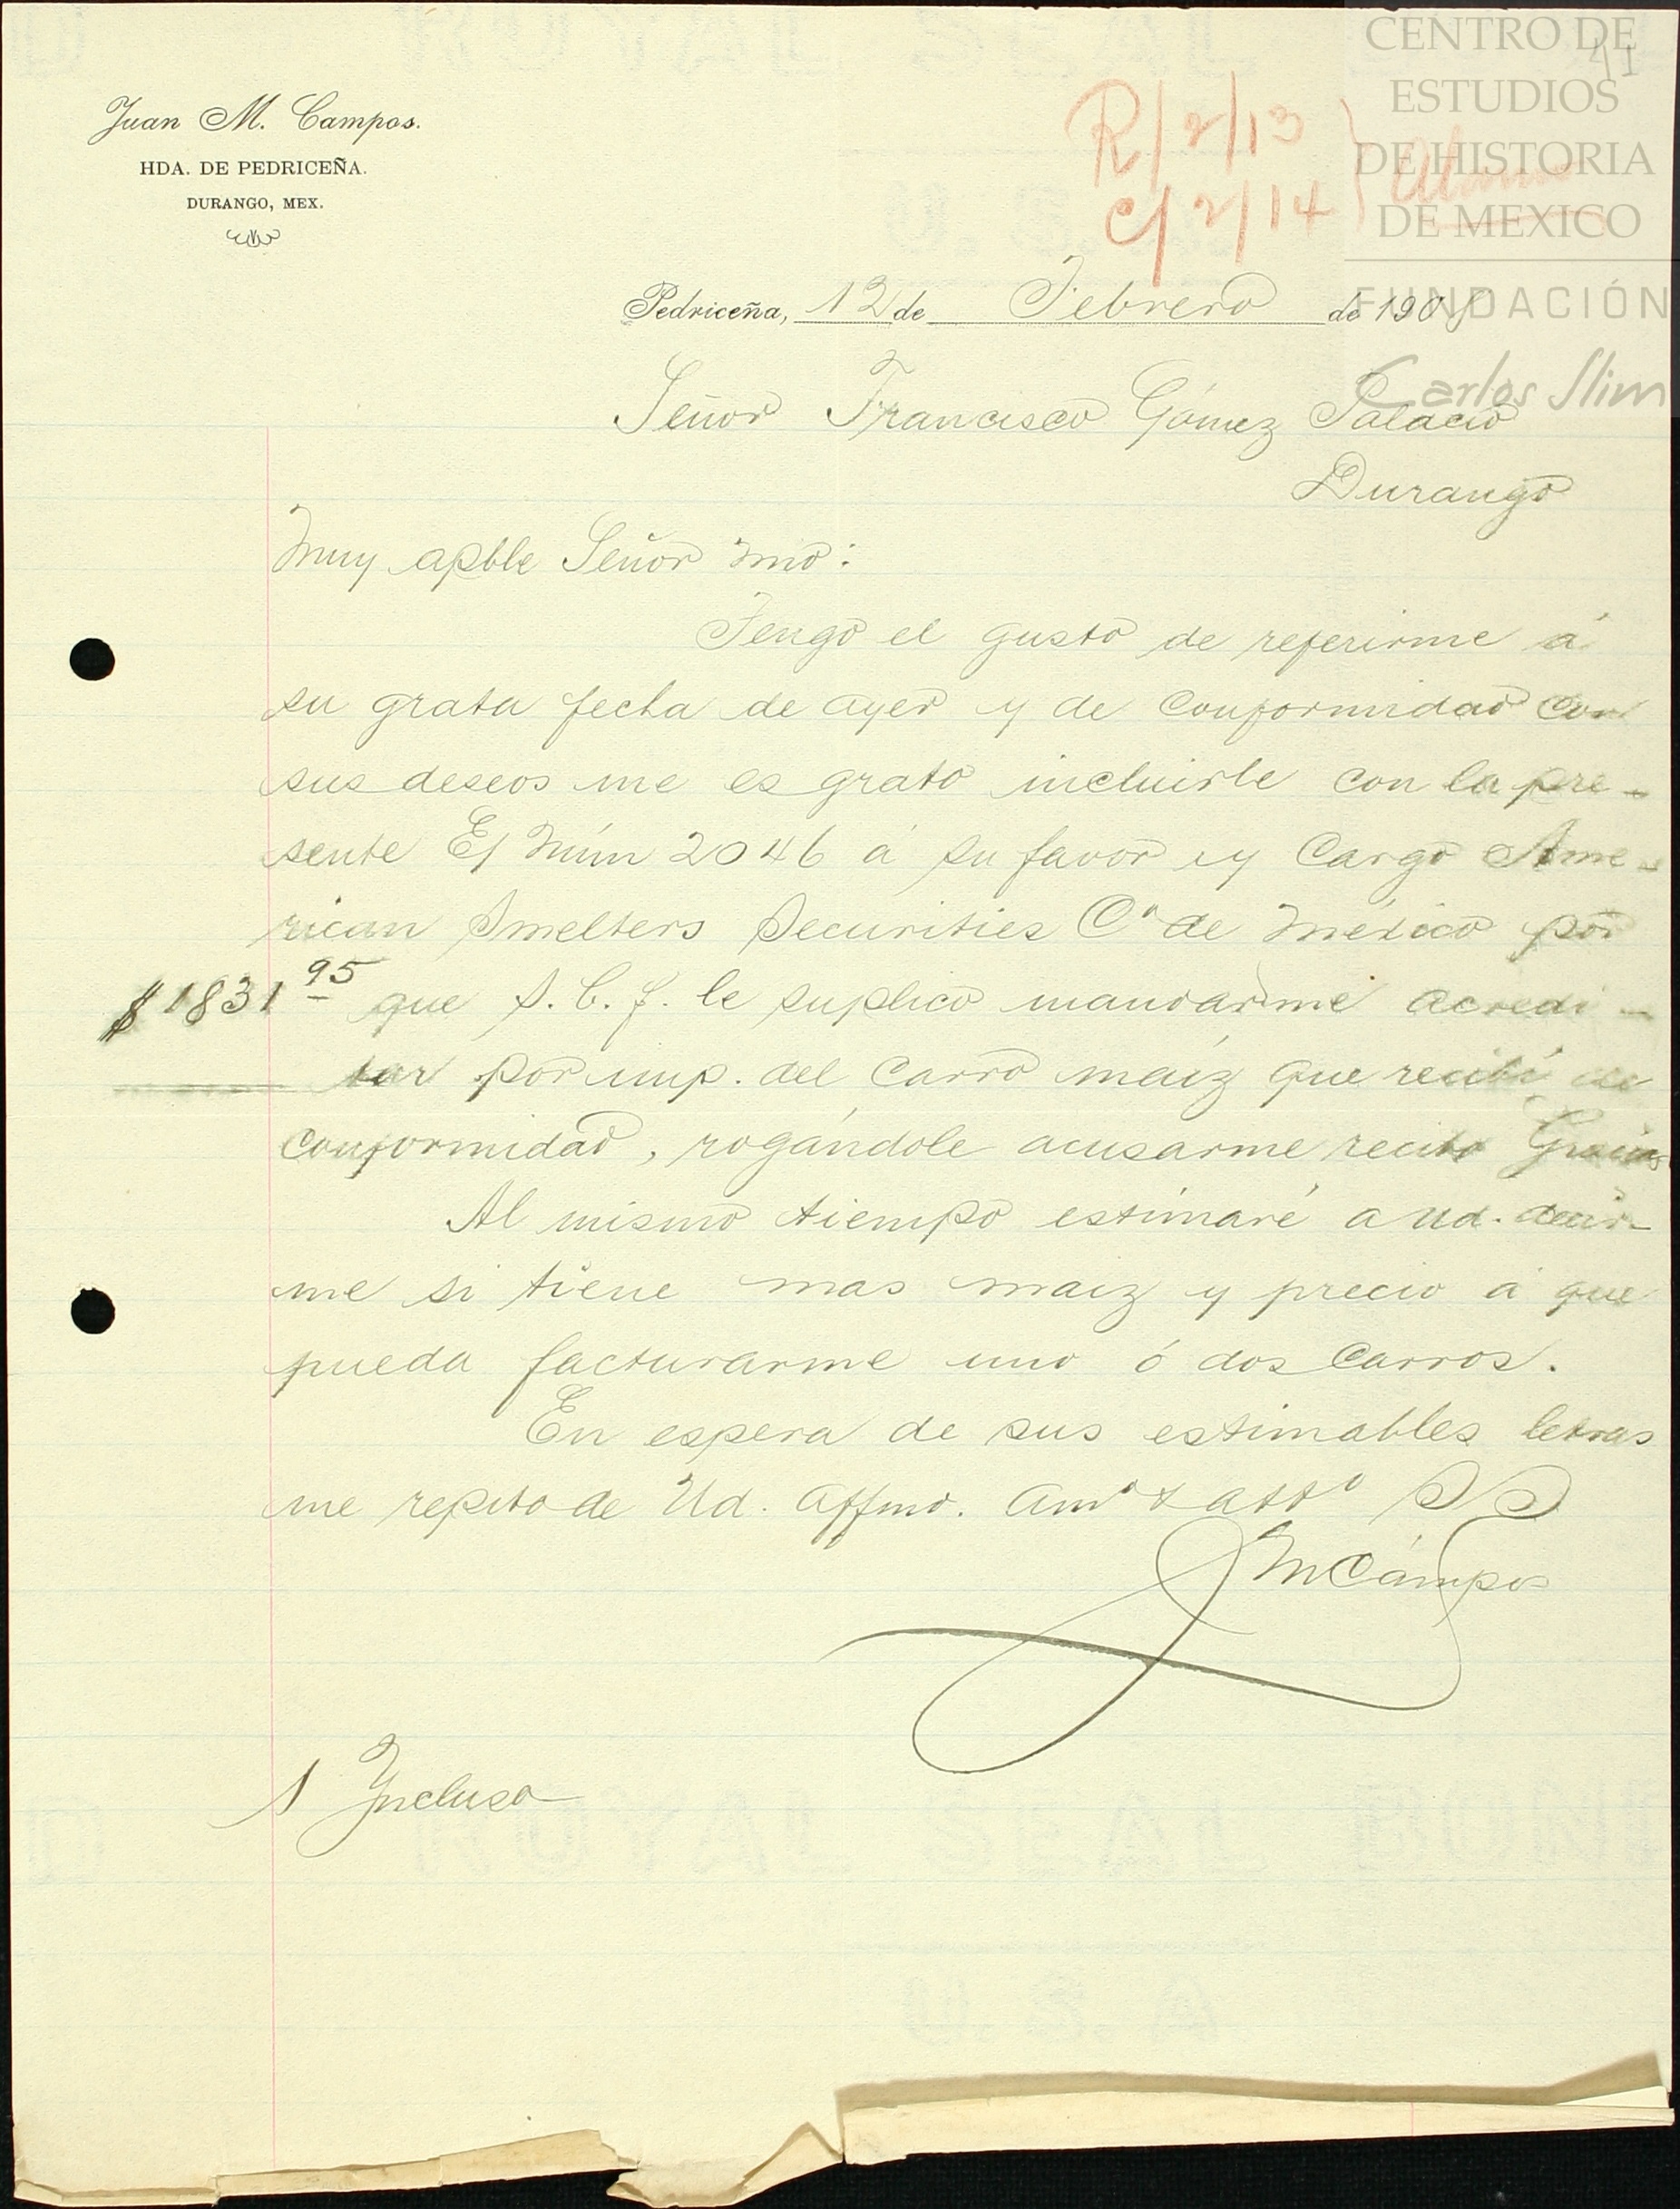 CENTRO DE
ESTUDIOS
DE HISTORIA
DE MEXICO
FUNDACIÓN
Carlos Slim
41
Juan M. Campos.
HDA. DE PEDRICEÑA.
DURANGO, MEX.
R/ 2/13
C/ 2/14
Pedriceña, 12 de Febrero de 190
Señor Francisco Gómez Palacio
Durango
Muy apble Señor mio:
Tengo el gusto de referirme á
su grata fecha de ayer y de conformidad con
sus deseos me es grato incluirle con la pre-
sente G/ Núm 2046 á su favor y cargo Ame-
rican Smelters Securities Cª de México por
$1831 95 que S. B. f. le suplico mandarme acredi-
tar por imp. del carro maíz que recibí de
conformidad, rogándole acusarme recibo Gracias
Al mismo tiempo estimaré a Ud. decir-
me si tiene mas maiz y precio á que
pueda facturarme uno ó dos carros.
En espera de sus estimables letras
me repito de Ud. Affmo. Amº y attº SS
JMCampos
1 Yncluso